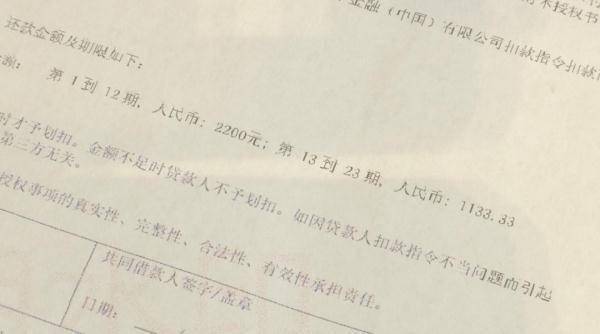 术授权书
金融（中国）有限公司扣款指令扣款
还款金额及期限如下：
额： 第 1 到 12 期，人民币：2200元；第 13 到 23 期，人民币：1133.33
时才予划扣。金额不足时贷款人不予划扣。如因贷款人扣款指令不当问题而引起
第三方无关。
授权事项的真实性、完整性、合法性、有效性承担责任。
共同借款人签字/盖章
日期：